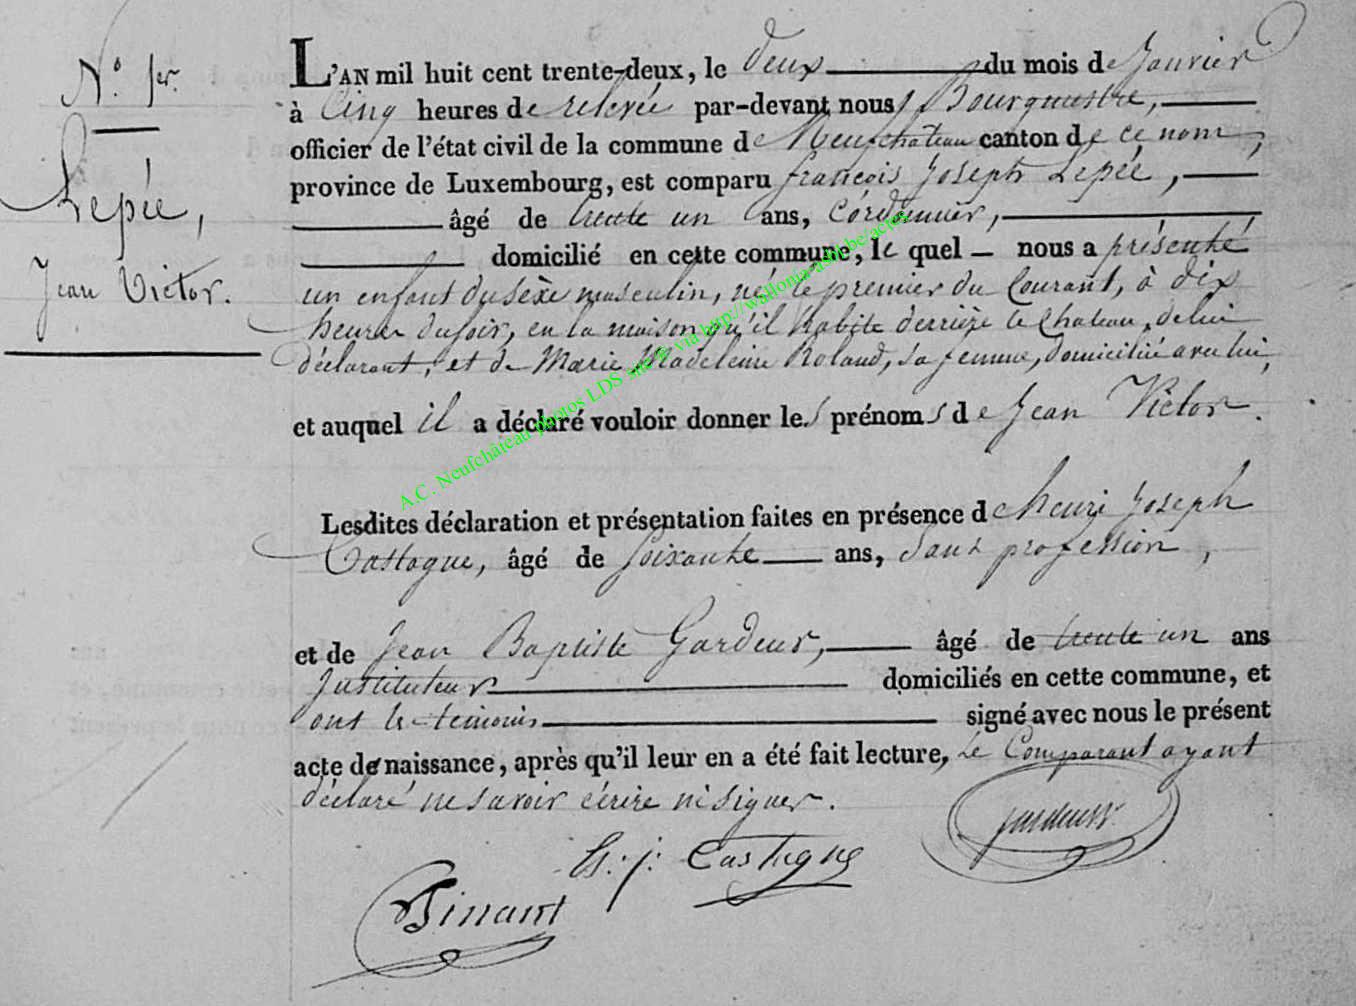 N.º 1er.
Lepée,
Jean Victor.
L'AN mil huit cent trente-deux, le deux du mois de Janvier
à Cinq heures de relevée par-devant nous Bourgmestre,
officier de l'état civil de la commune de Neufchateau canton de ce nom,
province de Luxembourg, est comparu françois Joseph Lepée,
âgé de trente un ans, Cordonnier,
domicilié en cette commune, le quel nous a présenté
un enfant du sèxe masculin, né le premier du Courant, à dix
heures du soir, en la maison qu'il habite derrière le Chateau, de lui
déclarant, et de Marie Madeleine Roland, sa femme, domiciliée avec lui,
et auquel il a déclaré vouloir donner les prénoms de Jean Victor.
Lesdites déclaration et présentation faites en présence de henri Joseph
Castagne, âgé de soixante ans, Sans profession,
et de Jean Baptiste Gardeur, âgé de trente un ans
Instituteur domiciliés en cette commune, et
ont les témoins signé avec nous le présent
acte de naissance, après qu'il leur en a été fait lecture, Le Comparant ayant
déclaré ne savoir écrire ni signer.
h. j. Castagne
A.C. Neufchâteau photos LDS via http://wallonia-asbl.be/actes